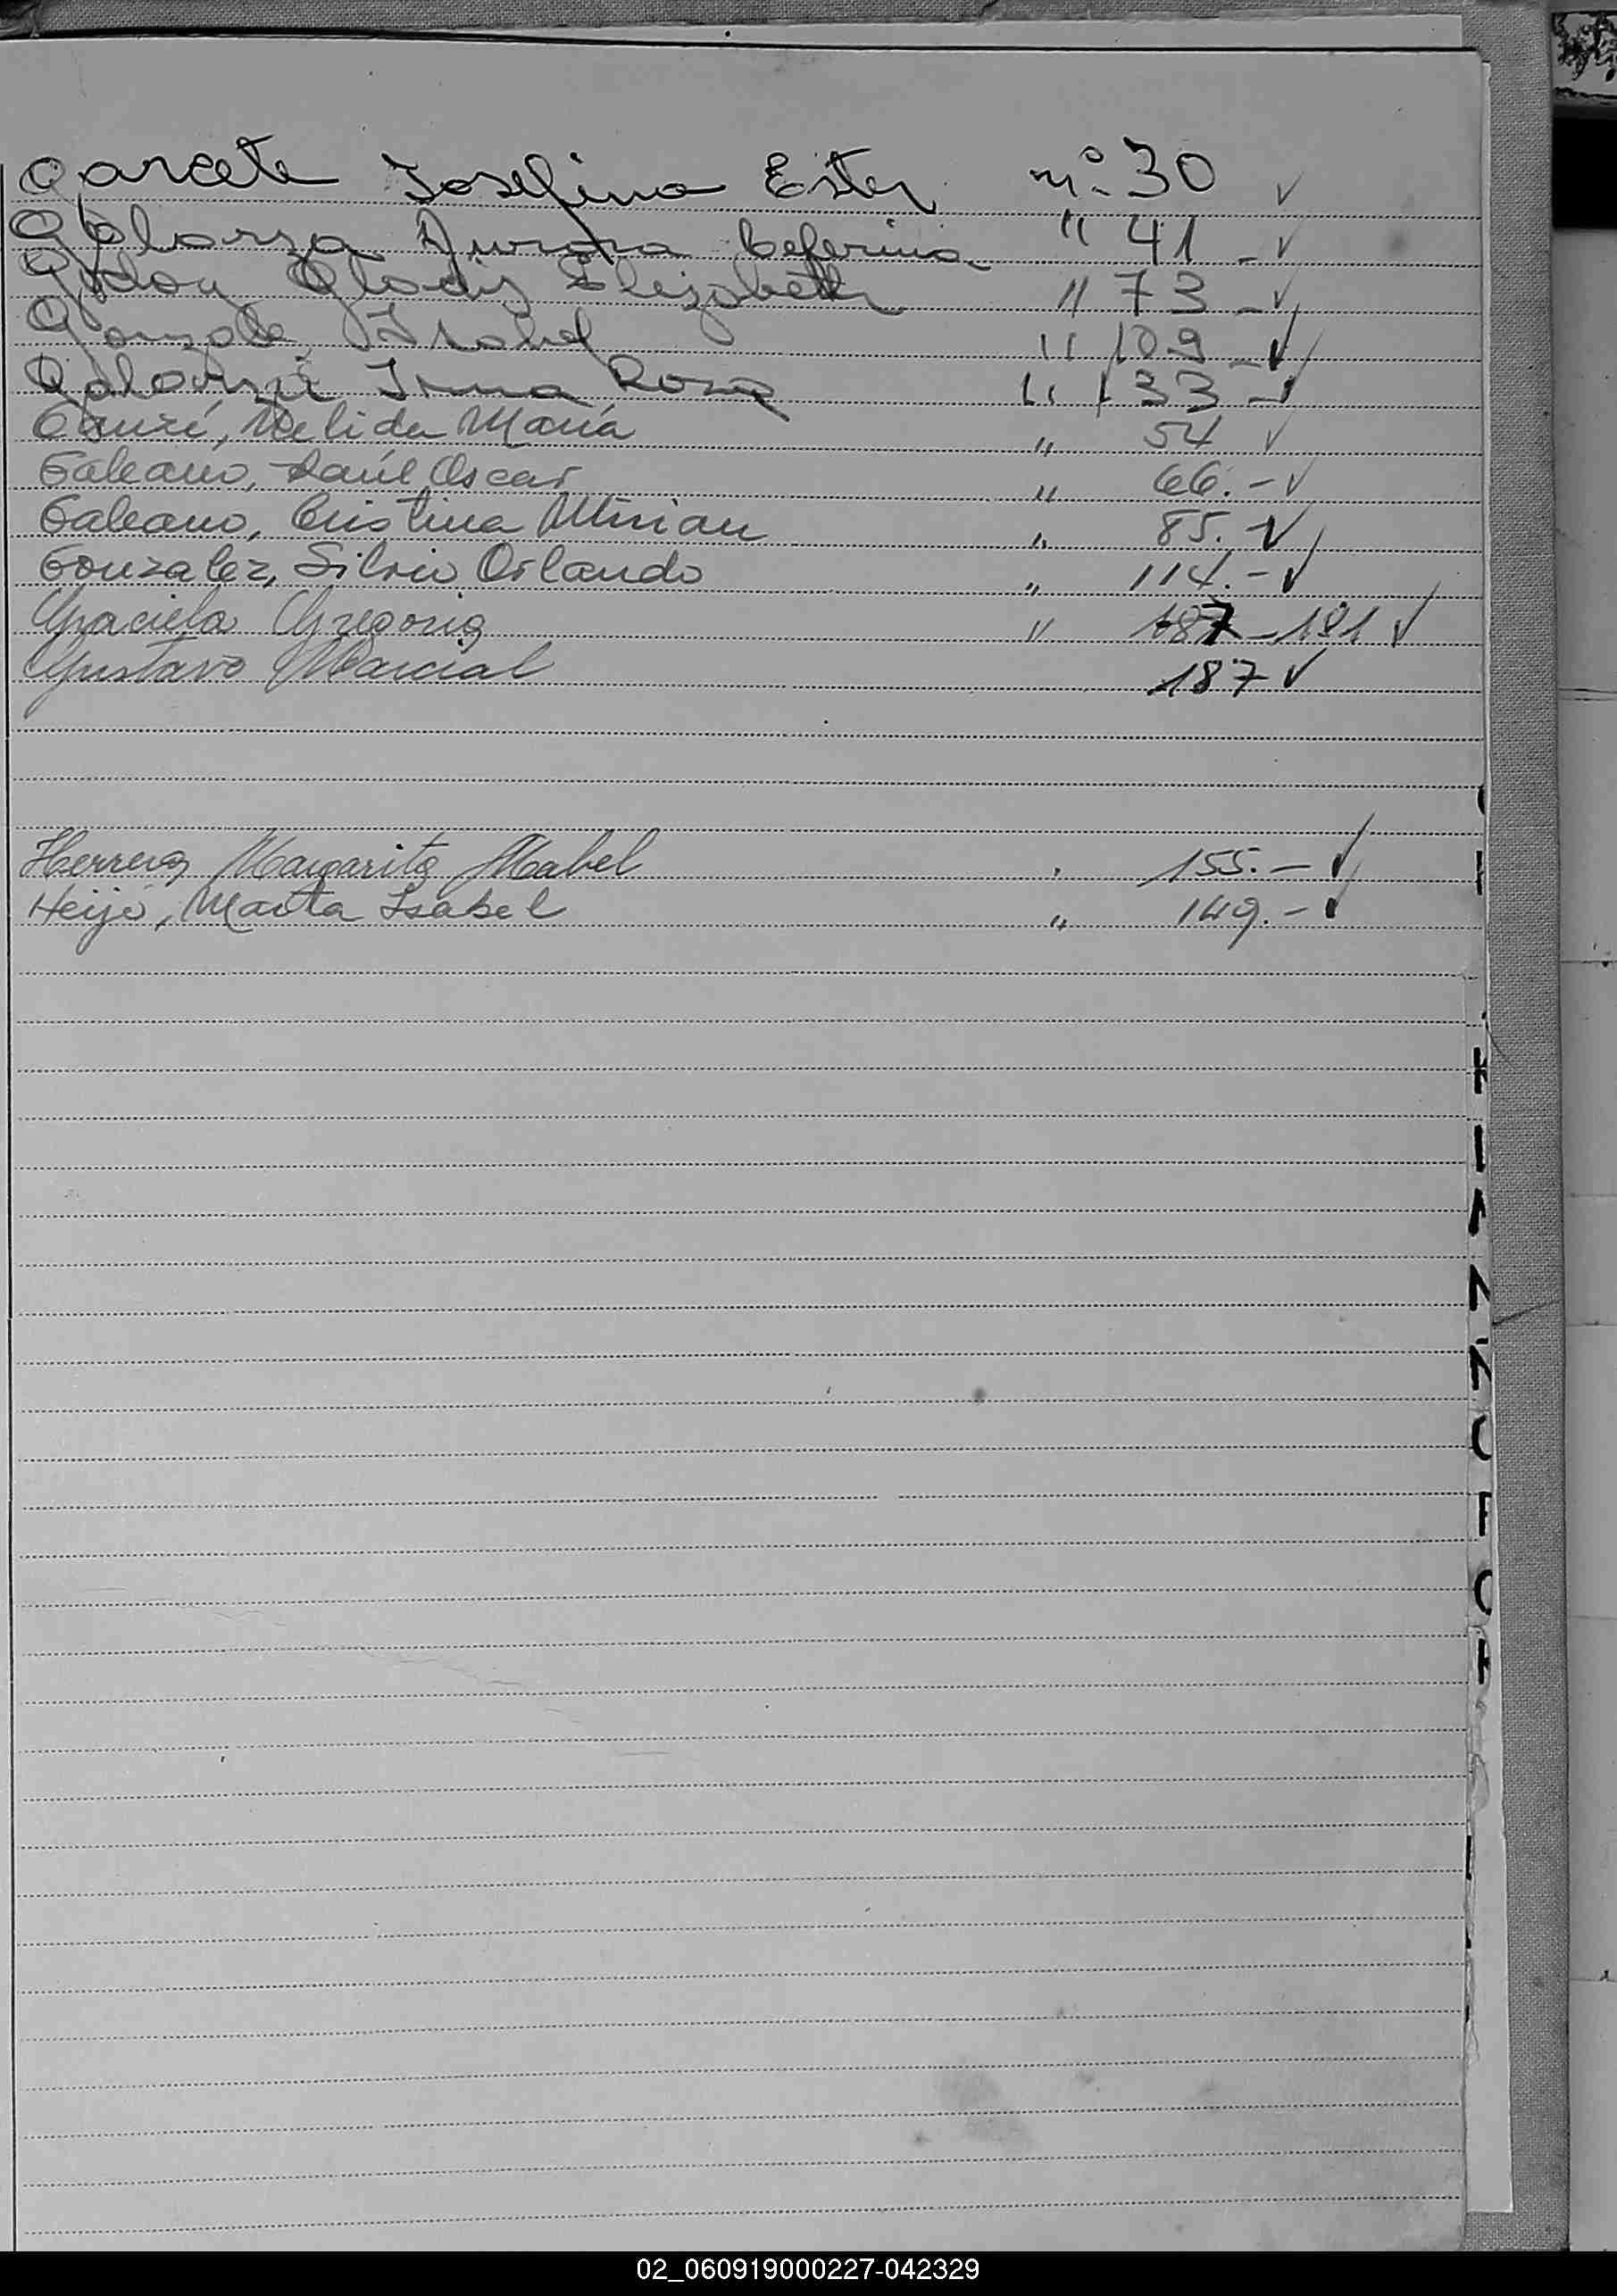 Garcete Josefina Ester nº 30 ✓
Galarza Aurora Ceferina " 41 - ✓
Godoy Gladis Elizabeth " 73 - ✓
Gonzale Isabel " 109 - ✓
Irma Rosa " 133 - ✓
Nelida María " 54 ✓
Galeano, Raúl Oscar " 66. - ✓
Galeano, Cristina Mirian " 85. - ✓
Gonzalez, Silvio Orlando " 114. - ✓
Graciela Gregoria " 187 - 191 ✓
Gustavo Marcial 187 ✓
Herrera Margarita Mabel " 155. - ✓
Heijo, Marta Isabel " 149. - ✓
02_060919000227-042329